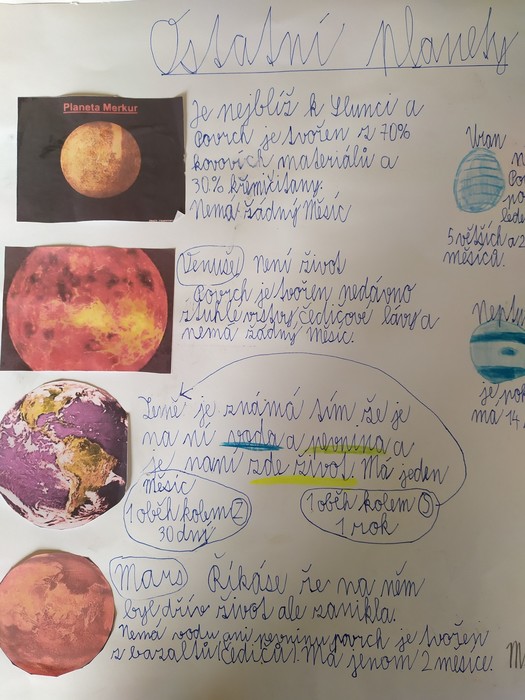 Ostatní planety
Planeta Merkur
Je nejblíž k Slunci a
povrch je tvořen z 70%
kovovích materiálů a
30% křemičitany.
Nemá žádný Měsíc
Venuše není život
Povrch je tvořen nedávno
ztuhlé vrstvy čedičové lávy a
nemá žádný Měsíc.
Země je známá tím že je
na ní voda a pevnina a
je nani zde život. Má jeden
Měsíc
1 oběh kolem Z
30 dní
1 oběh kolem S
1 rok
Mars Říkáse že na něm
byl dřív život ale zanikla.
Nemá vodu ani pevninu povrch je tvořen
z bazaltů (čediča). Má jenom 2 měsíce.
Uran
5 větších a 2
měsíců.
Neptu
je pok
má 14